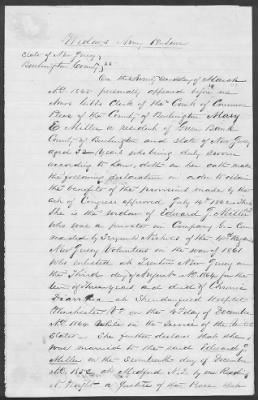 Widow's Army Pension
State of New Jersey
Burlington County ss
On this twenty second day of March
AD. 1865 personally appeared before me
Clerk of the Court of Common
Pleas of the County of Burlington Mary
E. Miller a resident of Green Bank
County of Burlington and State of New Jersey
aged 32 years who being duly sworn
according to law, doth on her oath make
the following declaration in order to obtain
the benefits of the provisions made by the
act of Congress approved July 14th 1862 That
She is the widow of Edward G. Miller
who was a private in Company G. Com
manded by of the 4th Regt
New Jersey Volunteers in the war of 1861
who enlisted at Trenton New Jersey on
the Third day of August AD. 1864 for the
term of Three years and died of Chronic
Diarrhea at Shenandoah Hospital
Winchester Va on the 4th day of December
AD. 1864 While in the Service of the United
States. She further declares that she
was married to the said Edward G.
Miller on the Seventeenth day of December
AD. at Medford N.J. by
a Justice of the Peace that